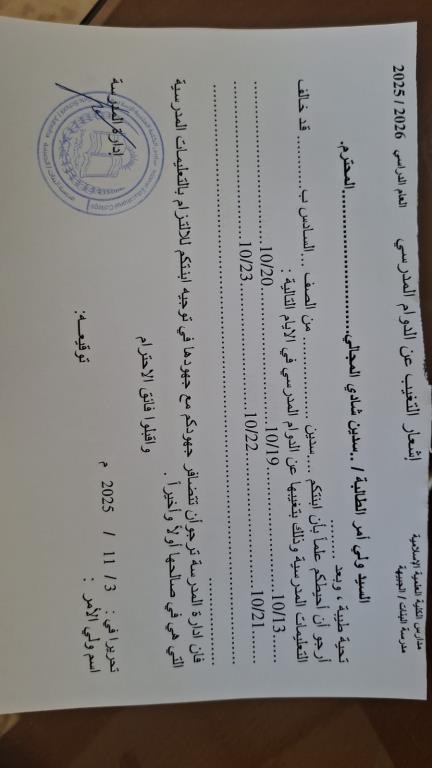 مدارس الكلية العلمية الإسلامية
مدرسة البنات / الجبيهة
إشعار التغيب عن الدوام المدرسي العام الدراسي 2025 / 2026
السيد ولي أمر الطالبة / ..سدين شادي المجالي..............................المحترم.
تحية طيبة ، وبعد ........
أرجو أن أحيطكم علماً بأن ابنتكم ....سدين ............... من الصف ....السادس ب........... قد خالفت
التعليمات المدرسية وذلك بتغيبها عن الدوام المدرسي في الايام التالية :
.......10/13..............................10/19..............................10/20..............................
.......10/21..............................10/22..............................10/23..............................
فان ادارة المدرسة ترجو أن تتضافر جهودكم مع جهودها في توجيه ابنتكم للالتزام بالتعليمات المدرسية
التي هي في صالحها أولاً وأخيراً .
واقبلوا فائق الاحترام
تحريرا في : 3 / 11 / 2025 م
إدارة المدرسة
اسم ولي الأمر :
توقيعــه: